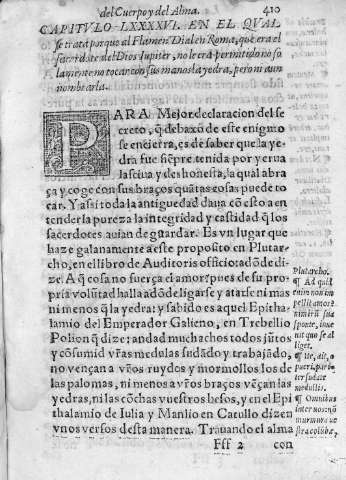 del Cuerpo y del Alma. 410
CAPITVLO LXXXXVI. EN EL QVAL
se trata porque al Flamen Dial en Roma, que era el
sacerdote del Dios Iupiter, no le era permitido no so
lamente no tocar con sus manos la yedra, pero ni aun
nombrarla.
PARA Mejor declaracion del se
creto, q̃ debaxo de este enigma
se encierra, es de saber que la ye
dra fue siẽpre tenida por yerua
lasciua y deshonesta, la qual abra
ça y coge con sus braços quãtas cosas puede to
car. Y assi toda la antiguedad daua cõ esto a en
tender la pureza la integridad y castidad q̃ los
sacerdotes auian de guardar. Es vn lugar que
haze galanamente a este proposito en Plutar-
cho, en el libro de Auditoris officio adõde di-
ze. A que cosa no fuerça el amor? pues de su pro-
pria volũtad halla adõde ligarse y atarse ni mas
ni menos q̃ la yedra: y sabido es aquel Epitha-
lamio del Emperador Galieno, en Trebellio
Polion q̃ dize: andad muchachos todos jũtos
y cõsumid vr̃as medulas sudãdo y trabajãdo,
no vençan a vr̃os ruydos y mormollos los de
las palomas, ni menos a vr̃os braços vẽçan las
yedras, ni las cõchas vuestros besos, y en el Epi
thalamio de Iulia y Manlio en Catullo dizen
vnos versos desta manera. Trauando el alma
Fff 2 con
Plutarcho.
¶ Ad quid
enim non im
pellit amor?
nimirũ sua
sponte, inue
nit que se al
liget.
¶ Ite, ait, o
pueri, pariter
sudate
medullis,
¶ Omnibus
inter nos, nõ
murmura ve
stra colũbæ,